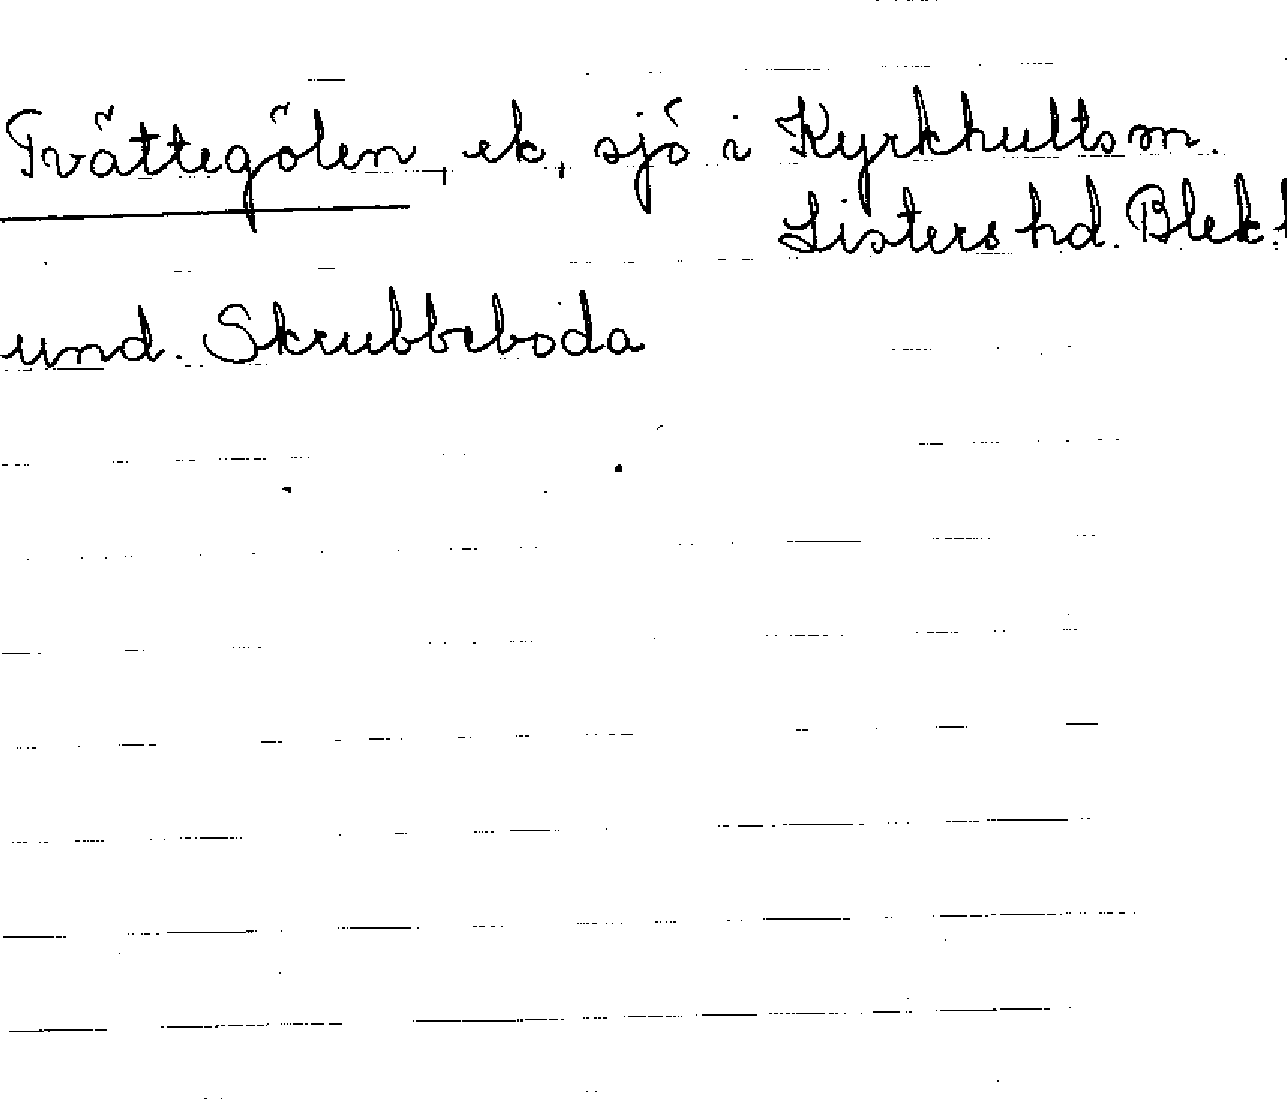 Tvättegölen, ek, sjö i Kyrkhults sn.
Listers hd. Blek.l
und. Skrubbeboda